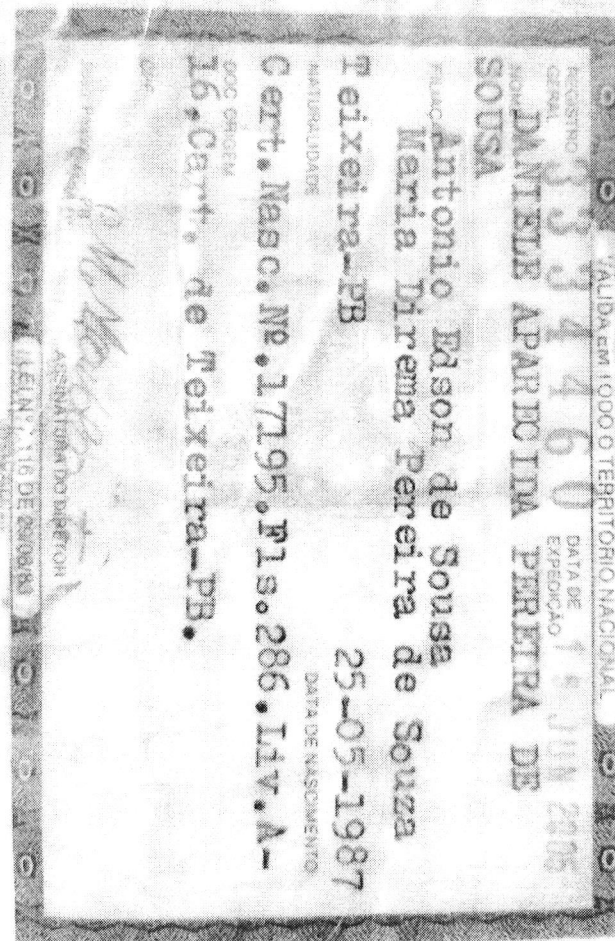 VALIDA EM TODO O TERRITÓRIO NACIONAL
REGISTRO GERAL 3334460 DATA DE EXPEDIÇÃO JUN 2005
NOME DANIELE APARECIDA PEREIRA DE
SOUSA
FILIAÇÃO Antonio Edson de Sousa
Maria Direma Pereira de Souza
Teixeira-PB 25-05-1987
NATURALIDADE DATA DE NASCIMENTO
Cert.Nasc.Nº.17195.Fls.286.Liv.A-
DOC ORIGEM
16.Cart. de Teixeira-PB.
CPF
ASSINATURA DO DIRETOR
LEI Nº 7.116 DE 29/08/83